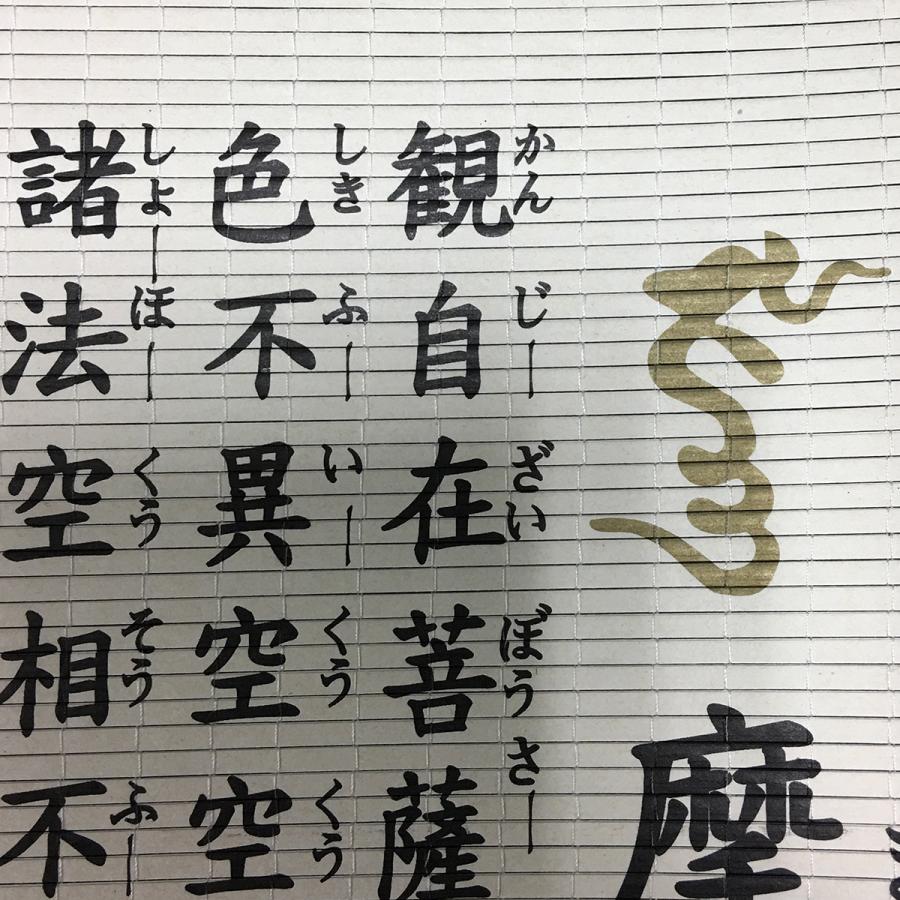 摩
観自在菩薩
かんじーざいぼうさー
色不異空空
しきふーいーくうくう
諸法空相不
しょーほーくうそうふー